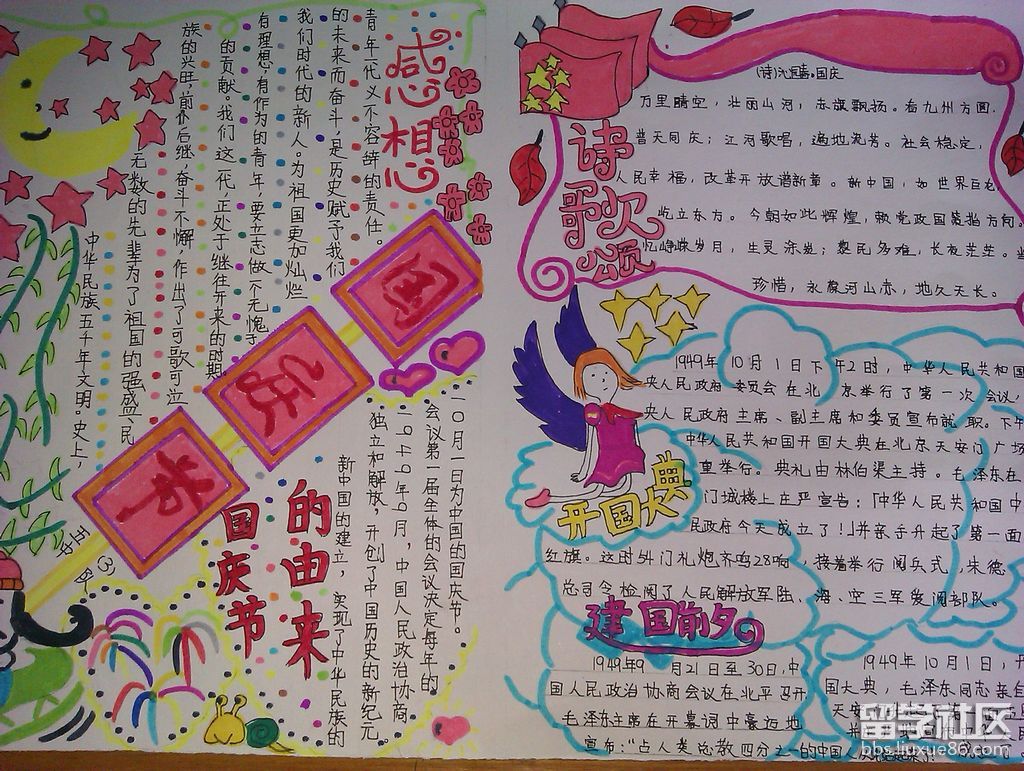 感想
青年一代义不容辞的责任。
的未来而奋斗,是历史赋予我们
我们时代的新人。为祖国更加灿烂
有理想,有作为的青年,要立志做个无愧于
的贡献。我们这一代,正处于继往开来的时期。
族的兴旺,前仆后继,奋斗不懈,作出了可歌可泣
无数的先辈为了祖国的强盛、民
中华民族五千年文明。史上,
国
庆
节
五中队
(3)
国庆节
的由来
10月1日为中国的国庆节。
会议第一届全体的会议决定每年的
一九四九年9月,中国人民政治协商
独立和解放,开创了中国历史的新纪元。
新中国的建立,实现了中华民族的
诗歌颂
国庆
万里晴空,壮丽山河,赤旗飘扬。看九州方圆,
普天同庆;江河歌唱,遍地流芳。社会稳定,
人民幸福,改革开放谱新章。新中国,如世界巨
屹立东方。今朝如此辉煌,赖党政国策指方向。
忆峥嵘岁月,生灵涂炭;黎民多难,长夜茫茫。
珍惜,永葆河山赤,地久天长。
开国大典
1949年10月1日下午2时,中华人民共和国
央人民政府委员会在北京举行了第一次会议,
央人民政府主席、副主席和委员宣布就职。下午
中华人民共和国开国大典在北京天安门广场
重举行。典礼由林伯渠主持。毛泽东在
门城楼上庄严宣告:「中华人民共和国中
民政府今天成立了!」并亲手升起了第一面
红旗。这时54门礼炮齐鸣28响,接着举行阅兵式,朱德
总司令检阅了人民解放军陆、海、空三军受阅部队。
建国前夕
1949年9月21日至30日,中
国人民政治协商会议在北平召开
毛泽东主席在开幕词中豪迈地
宣布:“占人类总数四分之一的中国人
1949年10月1日,开
国大典,毛泽东同志亲自
天安
留学社区
bbs.liuxue86.com